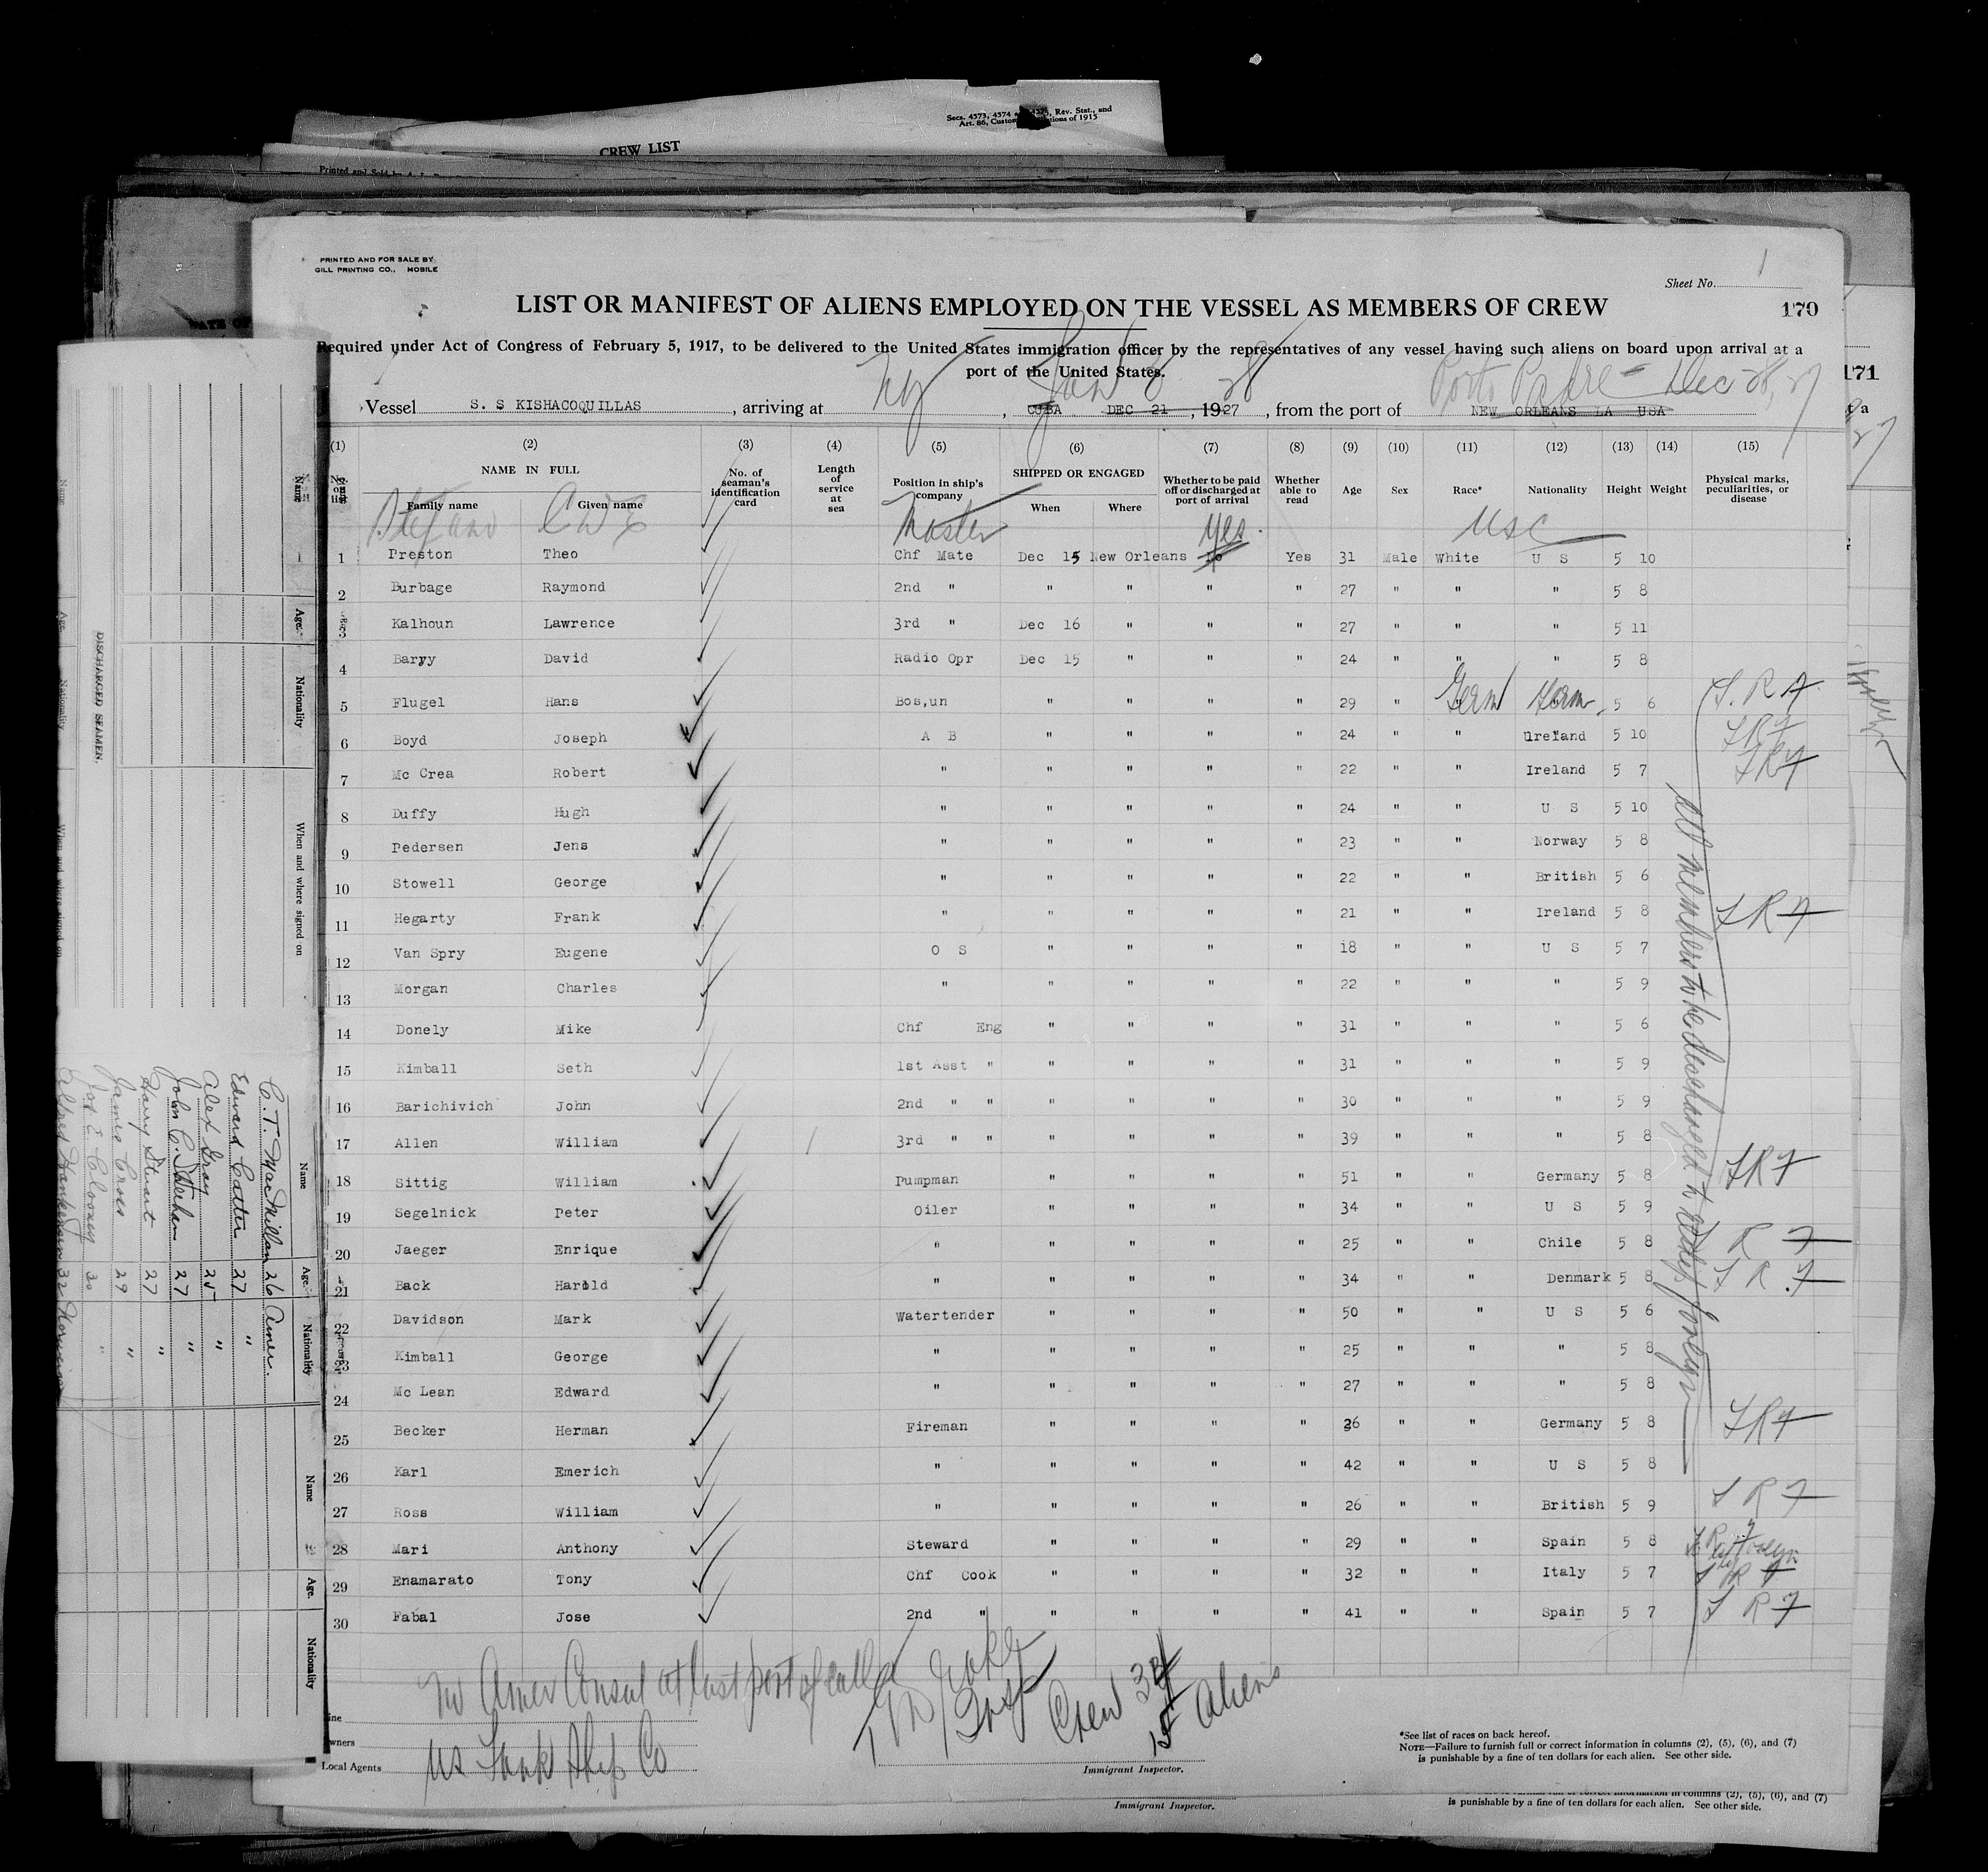 Secs. 4573, 4574 a 4575, Rev. Stat., and
Art. 86, Custom tions of 1915
CREW LIST
PRINTED AND FOR SALE BY
GILL PRINTING CO., MOBILE
Sheet No. 1
LIST OR MANIFEST OF ALIENS EMPLOYED ON THE VESSEL AS MEMBERS OF CREW
170
Required under Act of Congress of February 5, 1917, to be delivered to the United States immigration officer by the representatives of any vessel having such aliens on board upon arrival at a
port of the United States.
171
Vessel S. S KISHACOQUILLAS, arriving at NY, Jan 3 28 CUBA DEC 21, 1927, from the port of Porto Padre - Dec 28, 27 NEW ORLEANS LA USA
(1) (2) (3) (4) (5) (6) (7) (8) (9) (10) (11) (12) (13) (14) (15)
No. on list NAME IN FULL Family name Given name No. of seaman's identification card Length of service at sea Position in ship's company SHIPPED OR ENGAGED When Where Whether to be paid off or discharged at port of arrival Whether able to read Age Sex Race* Nationality Height Weight Physical marks, peculiarities, or disease
Master Yes USC
1 Preston Theo Chf Mate Dec 15 New Orleans No Yes 31 Male White U S 5 10
2 Burbage Raymond 2nd " " " " " 27 " " " 5 8
3 Kalhoun Lawrence 3rd " Dec 16 " " " 27 " " " 5 11
4 Baryy David Radio Opr Dec 15 " " " 24 " " " 5 8
5 Flugel Hans Bos,un " " " " 29 " Germ Germ 5 6 S. R F
6 Boyd Joseph A B " " " " 24 " " Ireland 5 10 S R F
7 Mc Crea Robert " " " " " 22 " " Ireland 5 7 S R F
8 Duffy Hugh " " " " " 24 " " U S 5 10
9 Pedersen Jens " " " " " 23 " " Norway 5 8
10 Stowell George " " " " " 22 " " British 5 6
11 Hegarty Frank " " " " " 21 " " Ireland 5 8 S R F
12 Van Spry Eugene O S " " " " 18 " " U S 5 7
13 Morgan Charles " " " " " 22 " " " 5 9
14 Donely Mike Chf Eng " " " " 31 " " " 5 6
15 Kimball Seth 1st Asst " " " " " 31 " " " 5 9
16 Barichivich John 2nd " " " " " " 30 " " " 5 9
17 Allen William 3rd " " " " " " 39 " " " 5 8
18 Sittig William Pumpman " " " " 51 " " Germany 5 8 S R F
19 Segelnick Peter Oiler " " " " 34 " " U S 5 9
20 Jaeger Enrique " " " " " 25 " " Chile 5 8 S R F
21 Back Harold " " " " " 34 " " Denmark 5 8 S R F
22 Davidson Mark Watertender " " " " 50 " " U S 5 6
23 Kimball George " " " " " 25 " " " 5 8
24 Mc Lean Edward " " " " " 27 " " " 5 8
25 Becker Herman Fireman " " " " 36 " " Germany 5 8 S R F
26 Karl Emerich " " " " " 42 " " U S 5 8
27 Ross William " " " " " 26 " " British 5 9 S R F
28 Mari Anthony Steward " " " " 29 " " Spain 5 8 S R F
29 Enamarato Tony Chf Cook " " " " 32 " " Italy 5 7 S R F
30 Fabal Jose 2nd " " " " " 41 " " Spain 5 7 S R F
All members to be discharged & reship foreign
No Amer Consul at last port of call
Insp
Crew 38
15 Aliens
Owners
Local Agents US Tank Ship Co
Immigrant Inspector.
*See list of races on back hereof.
NOTE—Failure to furnish full or correct information in columns (2), (5), (6), and (7)
is punishable by a fine of ten dollars for each alien. See other side.
Immigrant Inspector.
is punishable by a fine of ten dollars for each alien. See other side.
DISCHARGED SEAMEN.
Name Age. Nationality When and where signed on
Name Age. Nationality
C. T. MacMillan 26 Amer.
Edward Cotter 27 "
Alex Gray 25 "
John C. Statham 27 "
Harry Stuart 27 "
James Cross 29 "
Jos E Clooney 30 "
Alfred 32
Name Age. Nationality